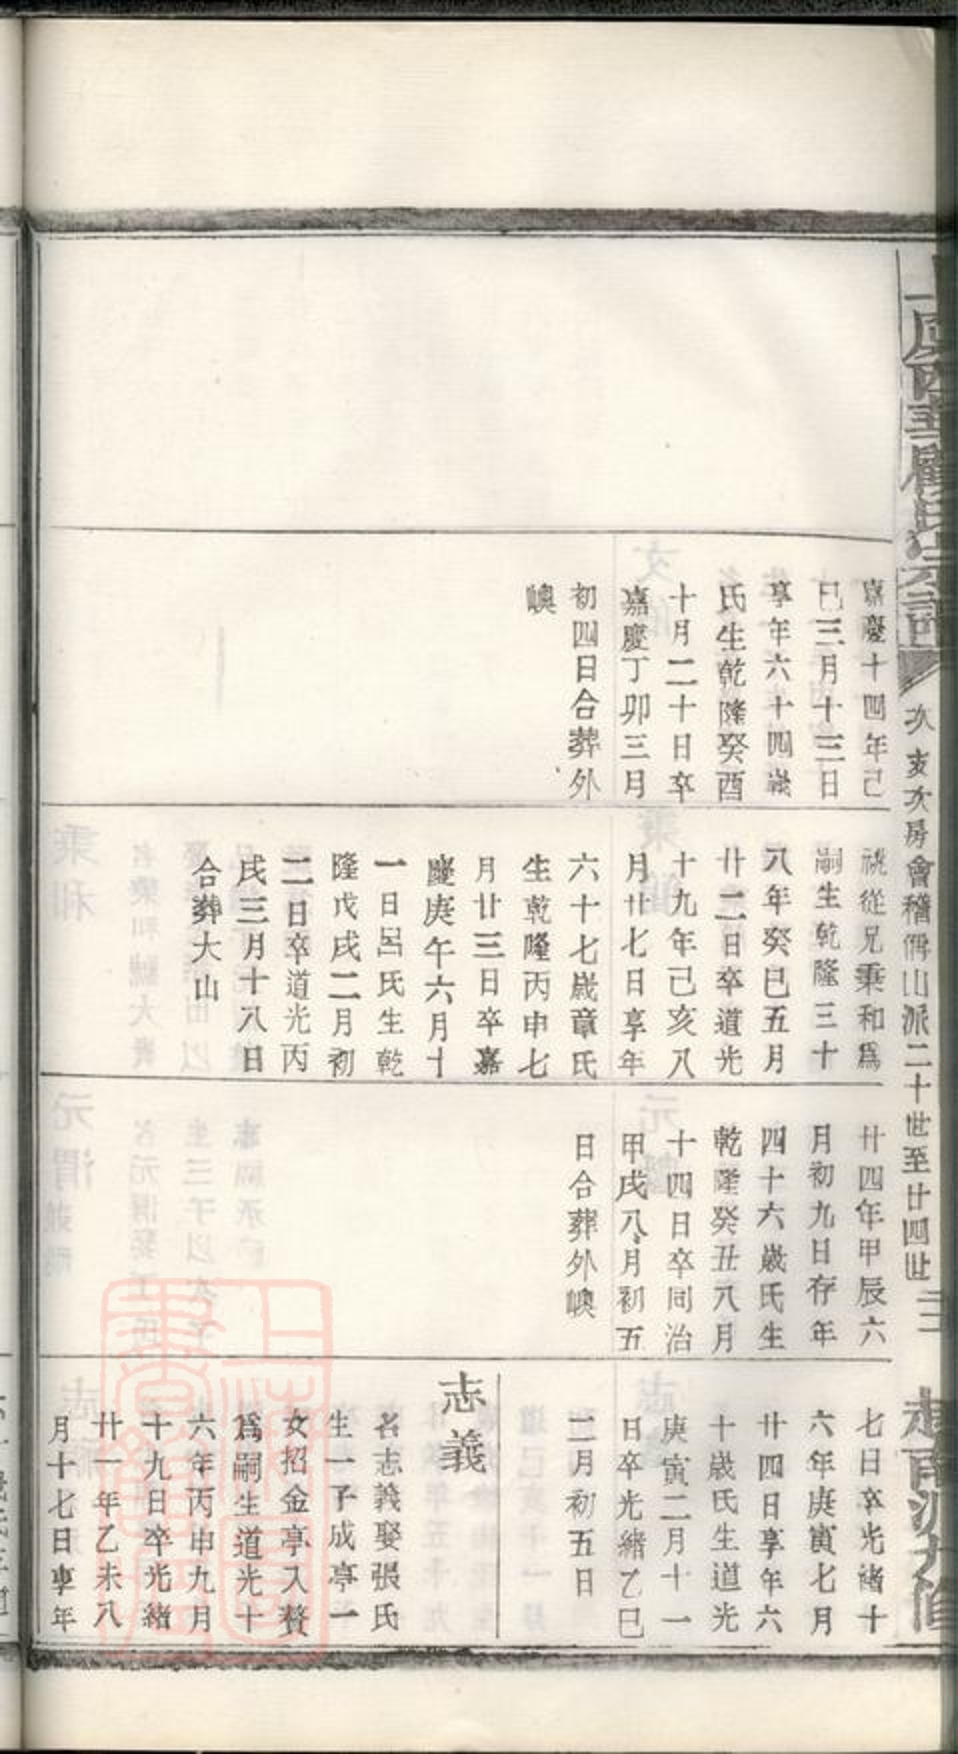 次亥次房會稽偁山派二十世至廿四世
嘉慶十四年己
巳三月十三日
享年六十四歲
氏生乾隆癸酉
十月二十日卒
嘉慶丁卯三月
初四日合葬外
㠗
祧從兄秉和爲
嗣生乾隆三十
八年癸巳五月
廿二日卒道光
十九年己亥八
月廿七日享年
六十七歲章氏
生乾隆丙申七
月廿三日卒嘉
慶庚午六月十
一日呂氏生乾
隆戊戌二月初
二日卒道光丙
戌三月十八日
合葬大山
廿四年甲辰六
月初九日存年
四十六歲氏生
乾隆癸丑八月
十四日卒同治
甲戌八月初五
日合葬外㠗
七日卒光緒十
六年庚寅七月
廿四日享年六
十歲氏生道光
庚寅二月十一
日卒光緒乙巳
二月初五日
志義
名志義娶張氏
生一子成亭一
女招金亭入贅
爲嗣生道光十
六年丙申九月
十九日卒光緒
廿一年乙未八
月十七日享年